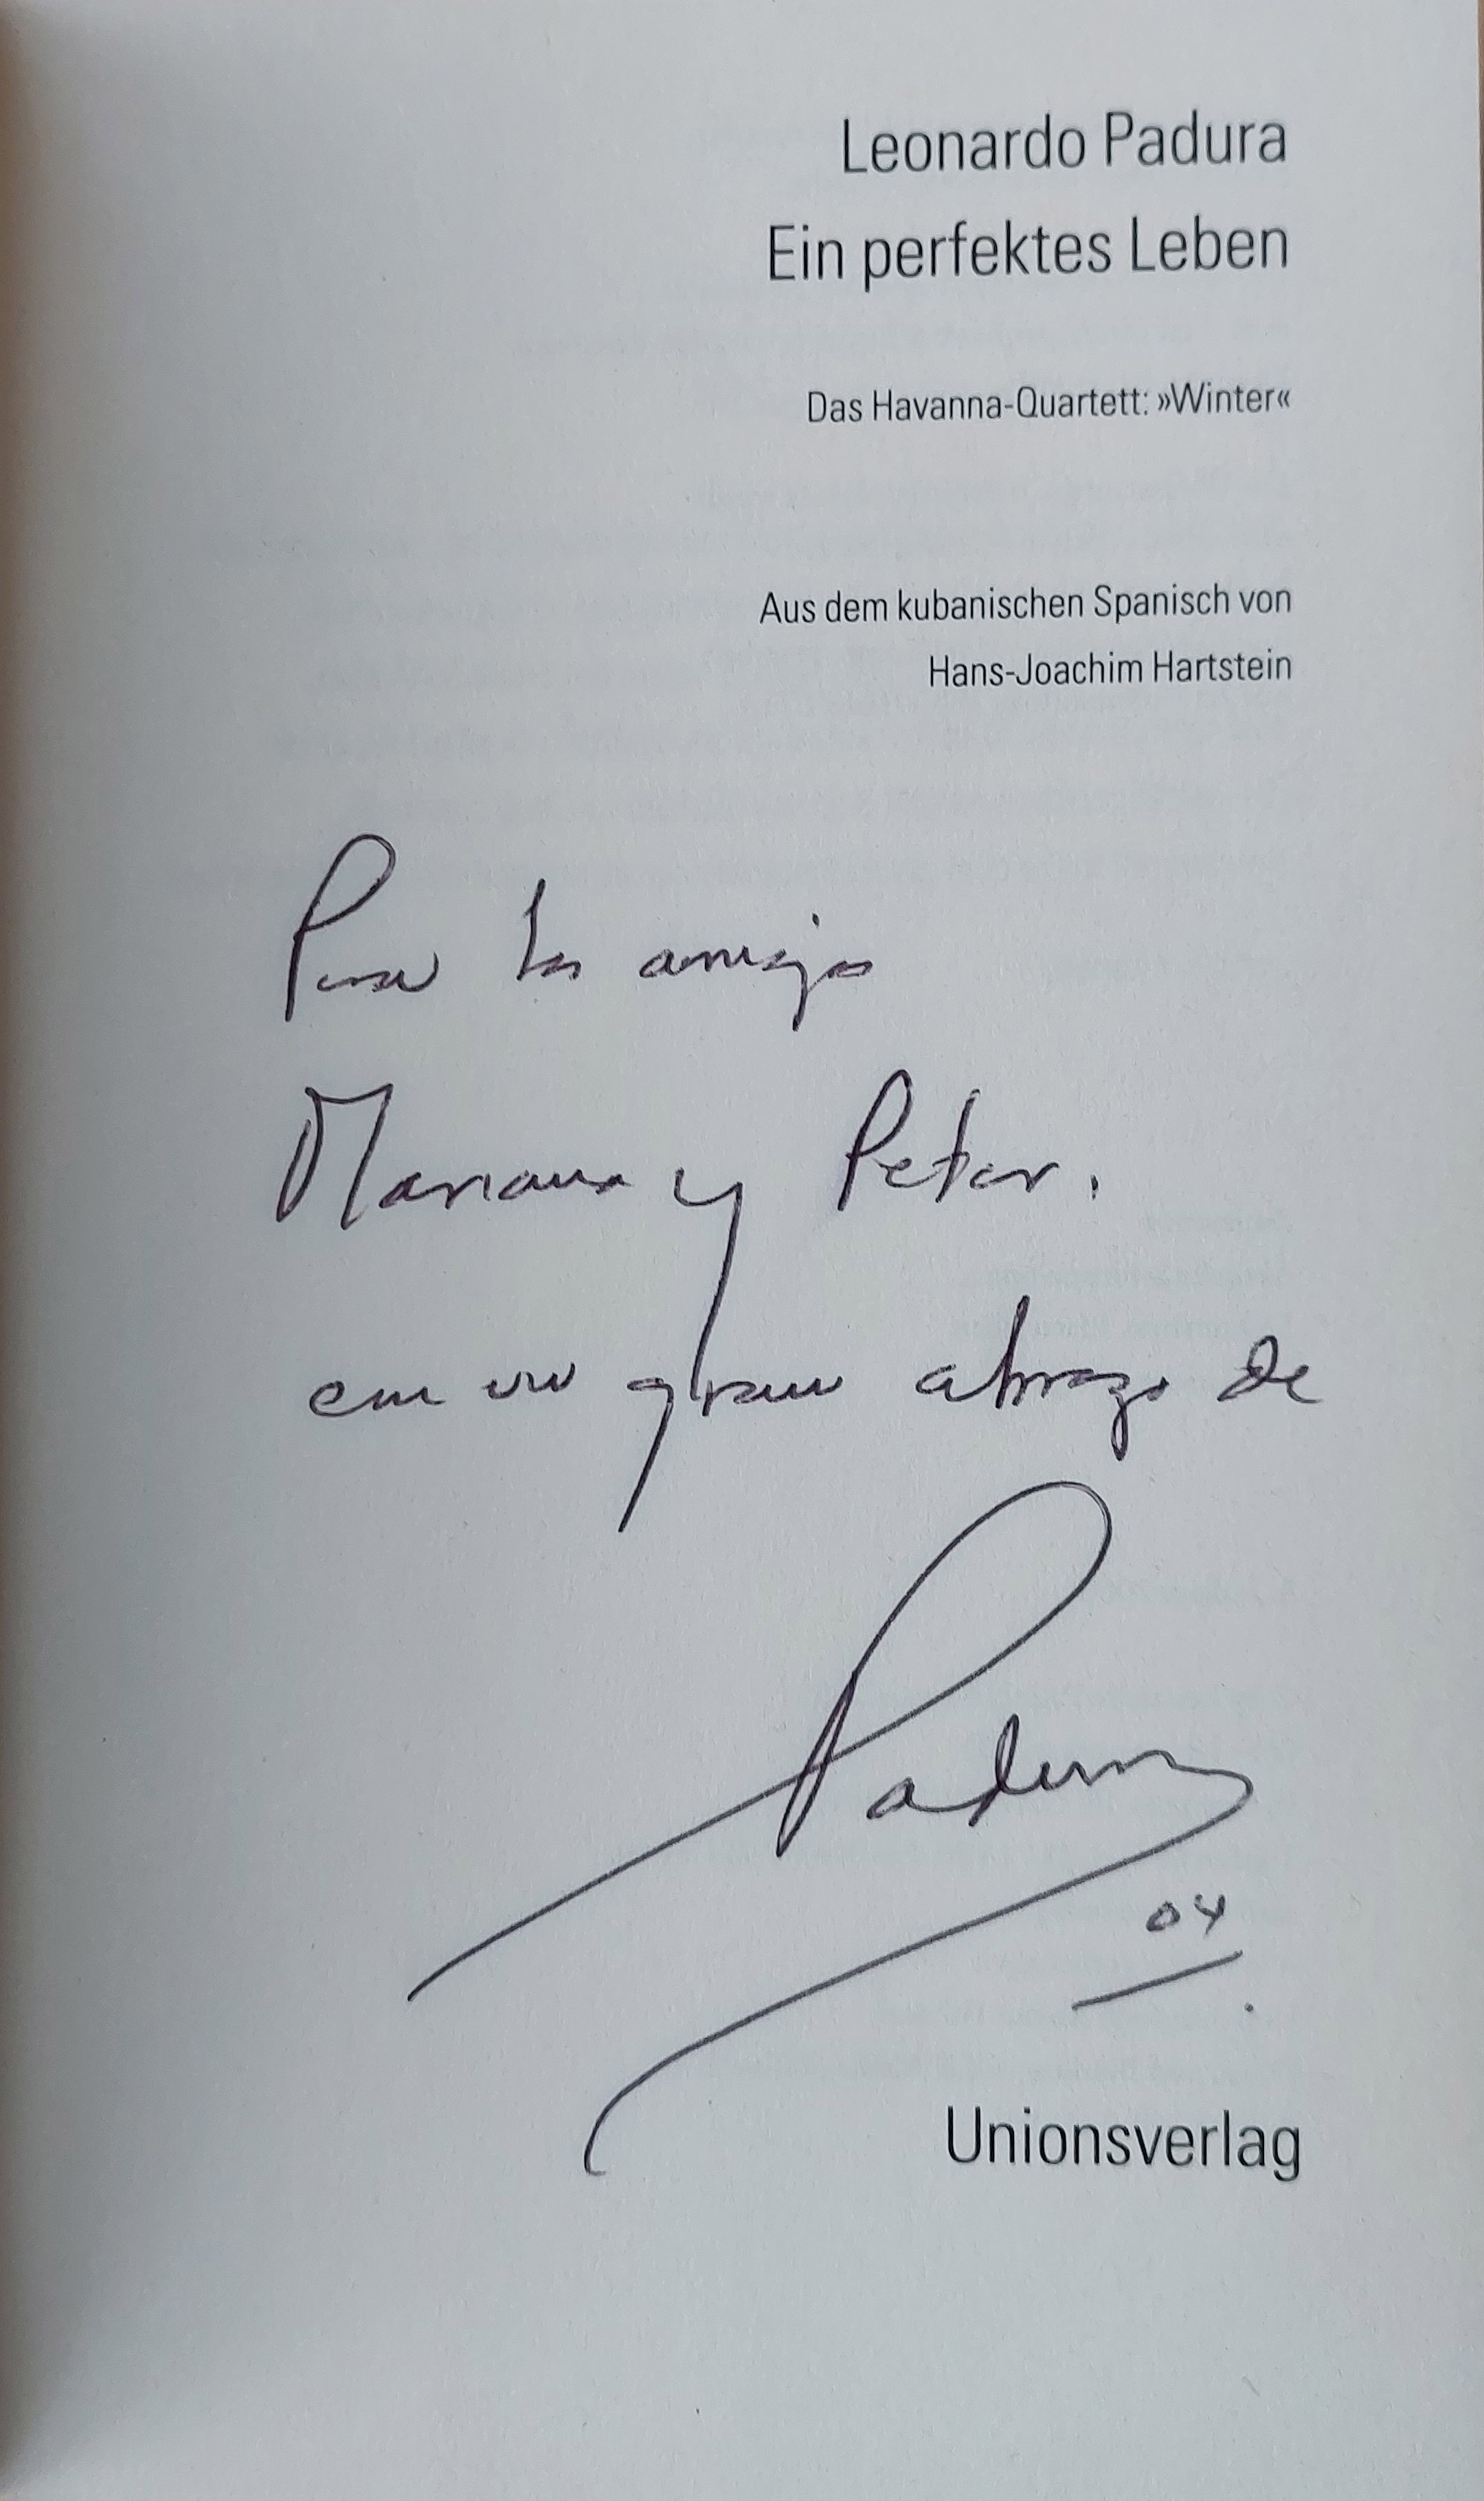 Leonardo Padura
Ein perfektes Leben
Das Havanna-Quartett: »Winter«
Aus dem kubanischen Spanisch von
Hans-Joachim Hartstein
Para los amigos
Mariana y Peter,
con un gran abrazo de
Padura
04
Unionsverlag